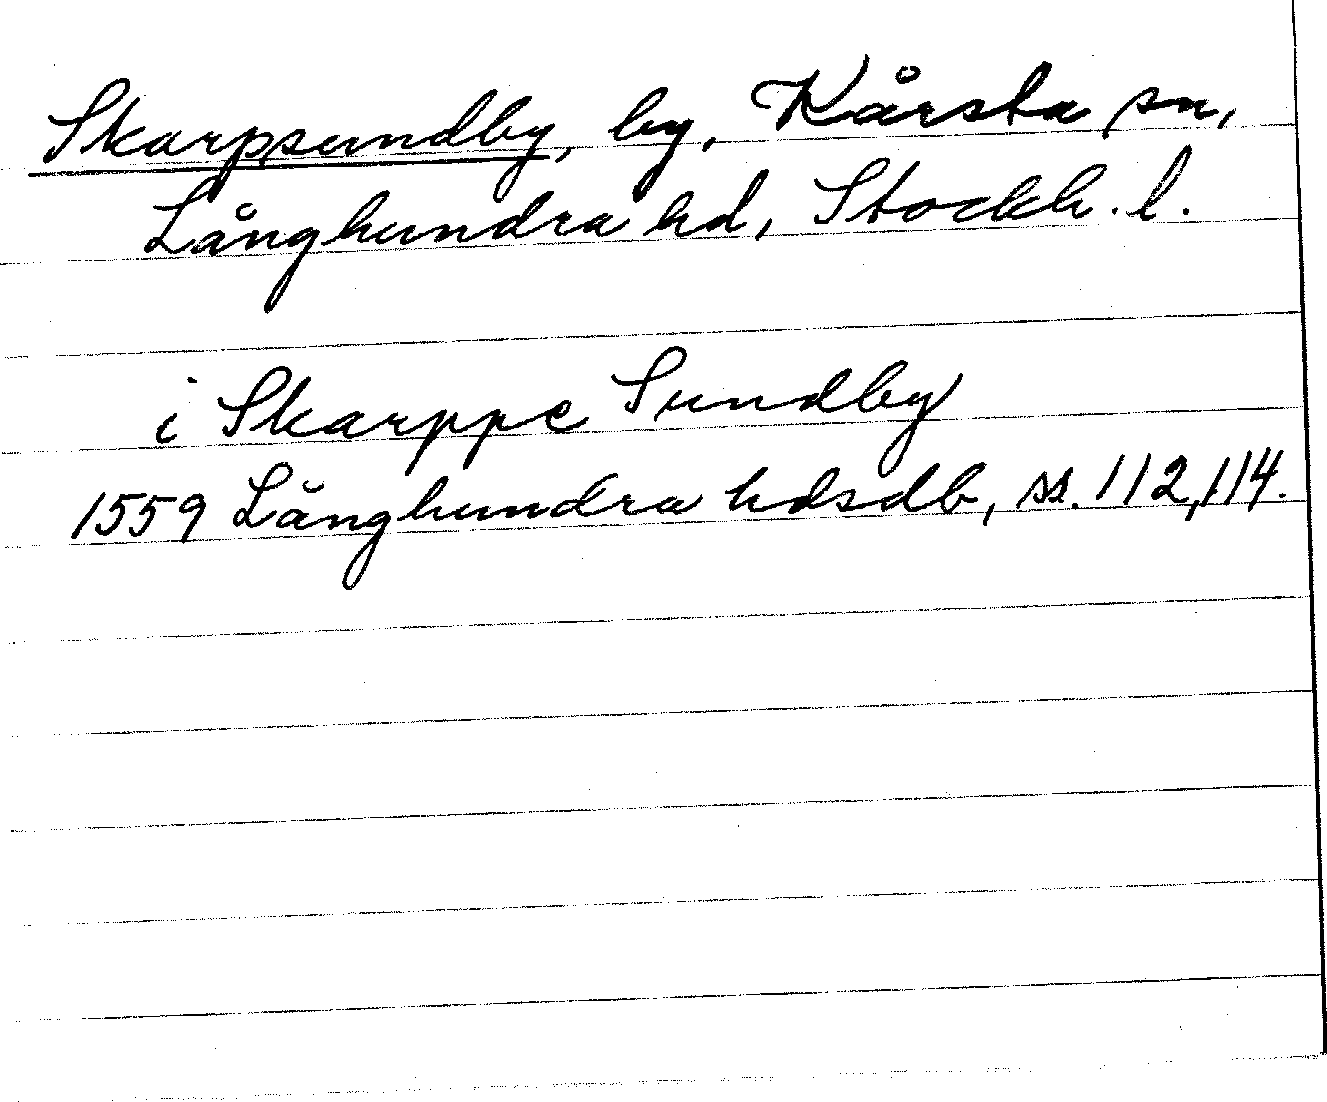 Skarpsundby, by, Kårsta sn,
Långhundra hd, Stockh. l.
i Skarppe Sundby
1559 Långhundra hdsdb, ss. 112, 114.